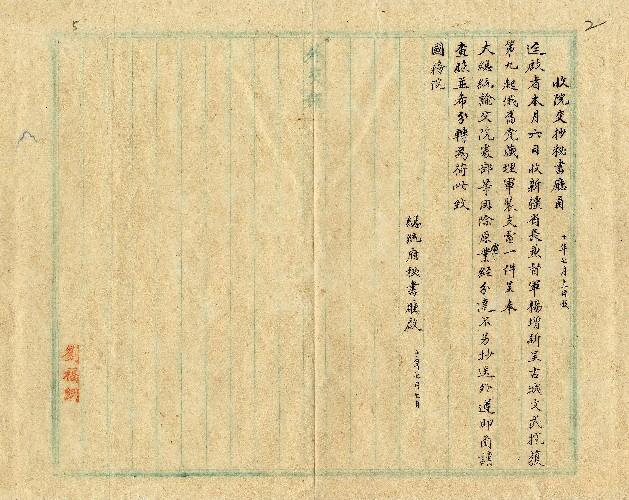 2
5
收院交抄秘書廳函
十年七月十一日收
逕啟者本月六日收新疆省長兼督軍楊增新呈古城文武挖獲
第九起俄舊党演埋軍裝支電一件呈奉
大總統諭交院參部等因除原業經分達不另抄送外遵即函請
查照並希分轉為荷此致
國務院
總統府秘書廳啟
十年七月七日
劉福綱